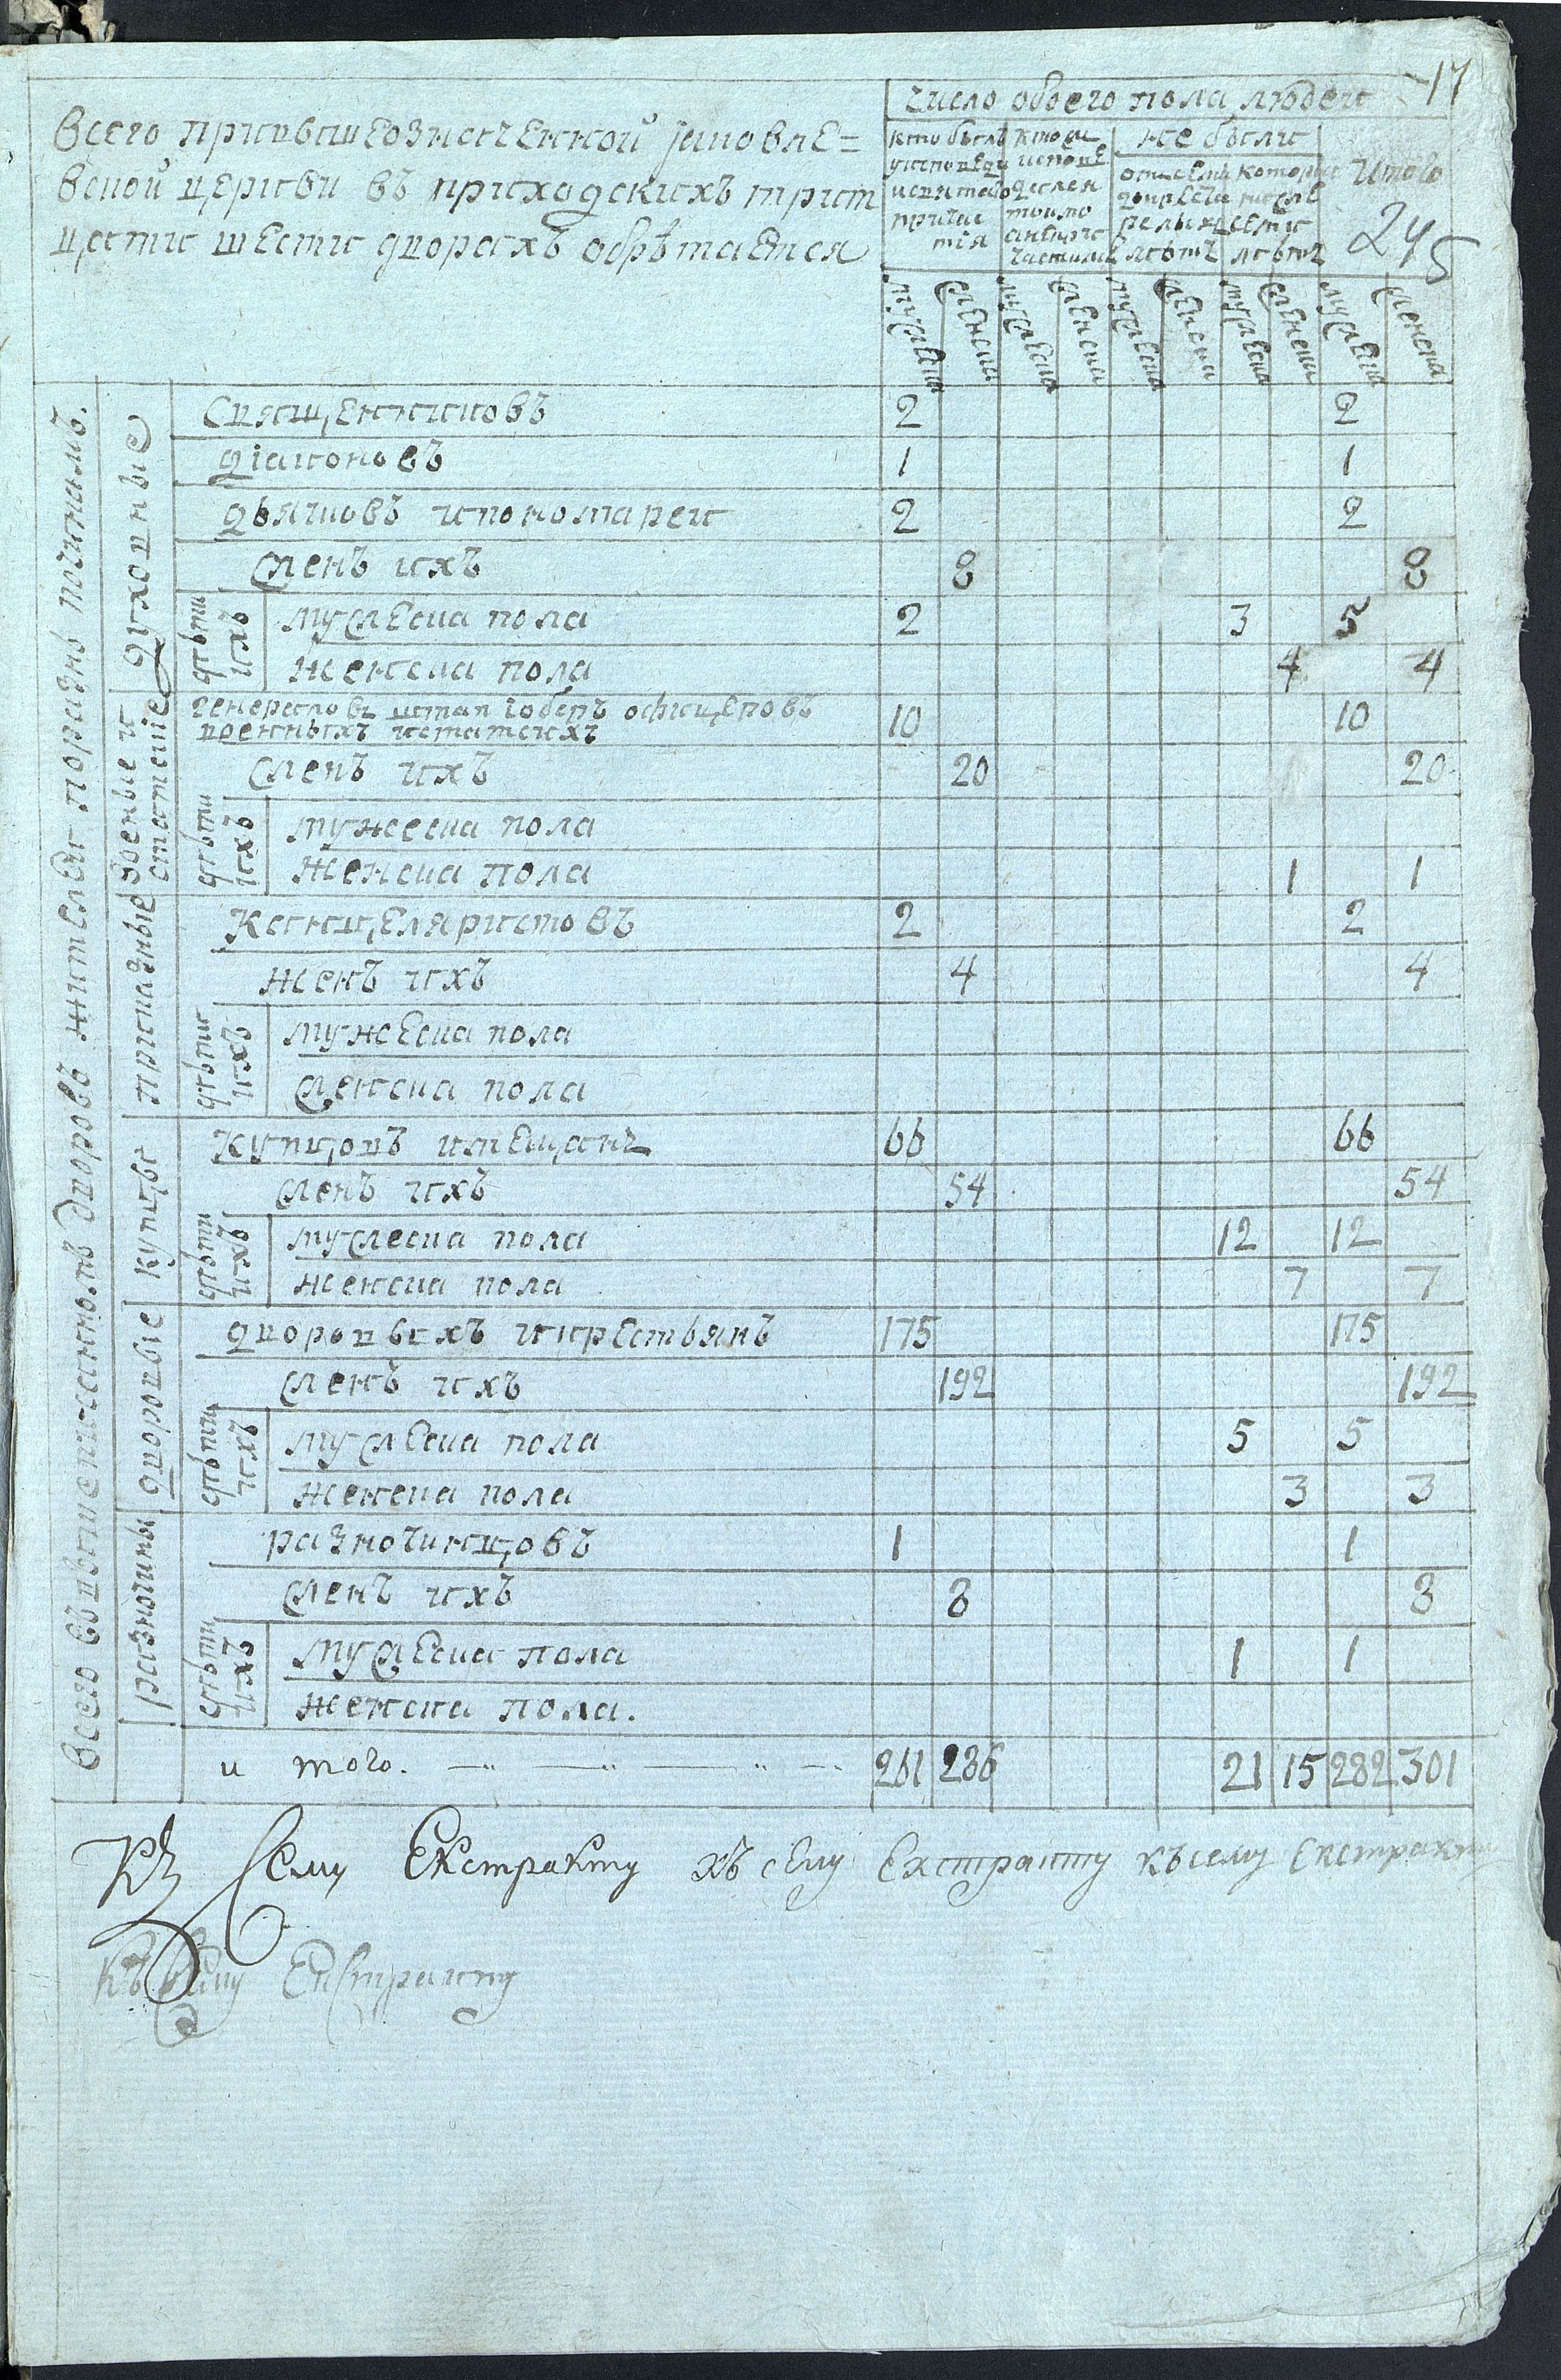 17
Всего при вышеозначенной Iаковле=
вской церкви въ приходскихъ трит
цати шести дворахъ обрѣтается
число обоего пола людей
кто былъ у исповеди и святаго причастия
кто они исповедались токмо а не причастились
не были
от семи до двенадцати лѣтъ
которые ниже семи лѣтъ
Итого
245
мужеска женска мужеска женска мужеска женска мужеска женска мужеска женска
Всего въ вышеписанномъ дворовъ жителей поразнь по чинамъ.
Духовные
Священниковъ 2 2
Дiаконовъ 1 1
дьячковъ и пономарей 2 2
Женъ ихъ 8 8
дѣти ихъ
мужеска пола 2 3 5
женска пола 4 4
военные и статские
генераловъ штап и оберъ офицеровъ
военныхъ и статскихъ 10 10
Женъ ихъ 20 20
дѣти ихъ
мужеска пола
женска пола 1 1
приказные
Канцеляристовъ 2 2
женъ ихъ 4 4
дѣти ихъ
мужеска пола
женска пола
купцы
Купцовъ и мещанъ 66 66
женъ ихъ 54 54
дѣти ихъ
мужеска пола 12 12
женска пола 7 7
дворовые
дворовыхъ и крестьянъ 175 175
женъ ихъ 192 192
дѣти ихъ
мужеска пола 5 5
женска пола 3 3
разночинцы
разночинцовъ 1 1
женъ ихъ 8 8
дѣти ихъ
мужеска пола 1 1
женска пола.
и того. 261 286 21 15 282 301
Къ Сему Екстракту къ сему Екстракту къ сему Екстракту
Къ Сему Екстракту